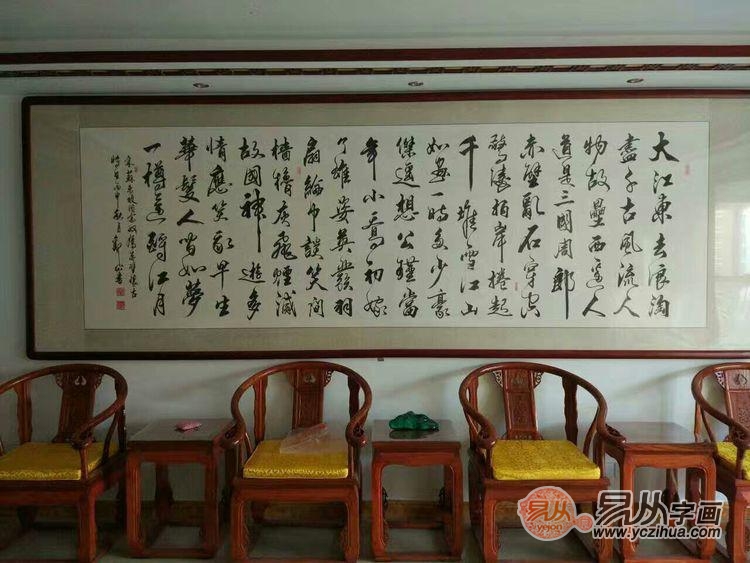 大江東去浪淘
盡千古風流人
物故壘西邊人
道是三國周郎
赤壁亂石穿空
驚濤拍岸捲起
千堆雪江山
如畫一時多少豪
傑遙想公瑾當
年小喬初嫁
了雄姿英發羽
扇綸巾談笑間
檣櫓灰飛煙滅
故國神遊多
情應笑我早生
華髮人皆如夢
一樽還酹江月
宋蘇東坡詞念奴嬌赤壁懷古
時在丙申秋月鄭山書
易从
易从字画
www.yczihua.com